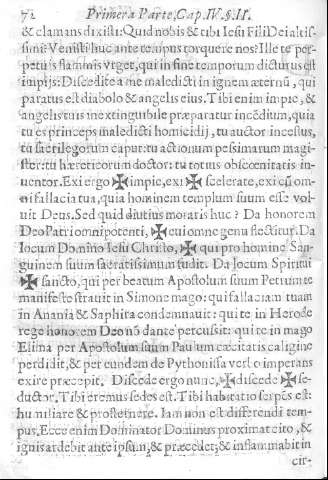 72 Primera Parte, Cap. IV. §. II.
& clamans dixisti: Quid nobis & tibi Iesu Fili Dei altis-
simi? Venisti huc ante tempus torquere nos? Ille te per-
petuis flammis vrget, qui in fine temporum dicturus est
impijs: Discedite a me maledicti in ignem æternũ, qui
paratus est diabolo & angelis eius. Tibi enim impie, &
angelis tuis inextinguibile præparatur incẽdium, quia
tu es princeps maledicti homicidij, tu auctor incestus,
tu sacrilegorum caput: tu actionum pessimarum magi-
ster: tu hæreticorum doctor: tu totius obscœnitatis in-
uentor. Exi ergo ✠ impie, exi ✠ scelerate, exi cũ om-
ni fallacia tua, quia hominem templum suum esse vol-
uit Deus. Sed quid diutius moraris huc? Da honorem
Deo Patri omnipotenti, ✠ cui omne genu flectitur. Da
locum Domino Iesu Christo, ✠ qui pro homine San-
guinem suum sacratissimum fudit. Da locum Spiritui
✠ sancto, qui per beatum Apostolum suum Petrum te
manifeste strauit in Simone mago: qui fallaciam tuam
in Anania & Saphira condemnauit: qui te in Herode
rege honorem Deo nõ dante percussit: qui te in mago
Elima per Apostolum suum Paulum cæcitatis caligine
perdidit, & per eundem de Pythonissa verbo imperans
exire præcepit. Discede ergo nunc, ✠ discede ✠ se-
ductor. Tibi eremus sedes est. Tibi habitatio serpẽs est:
humiliare & prosternere. Iam non est differendi tem-
pus. Ecce enim Dominator Dominus proximat cito, &
ignis ardebit ante ipsum, & præcedet; & inflammabit in
cir-